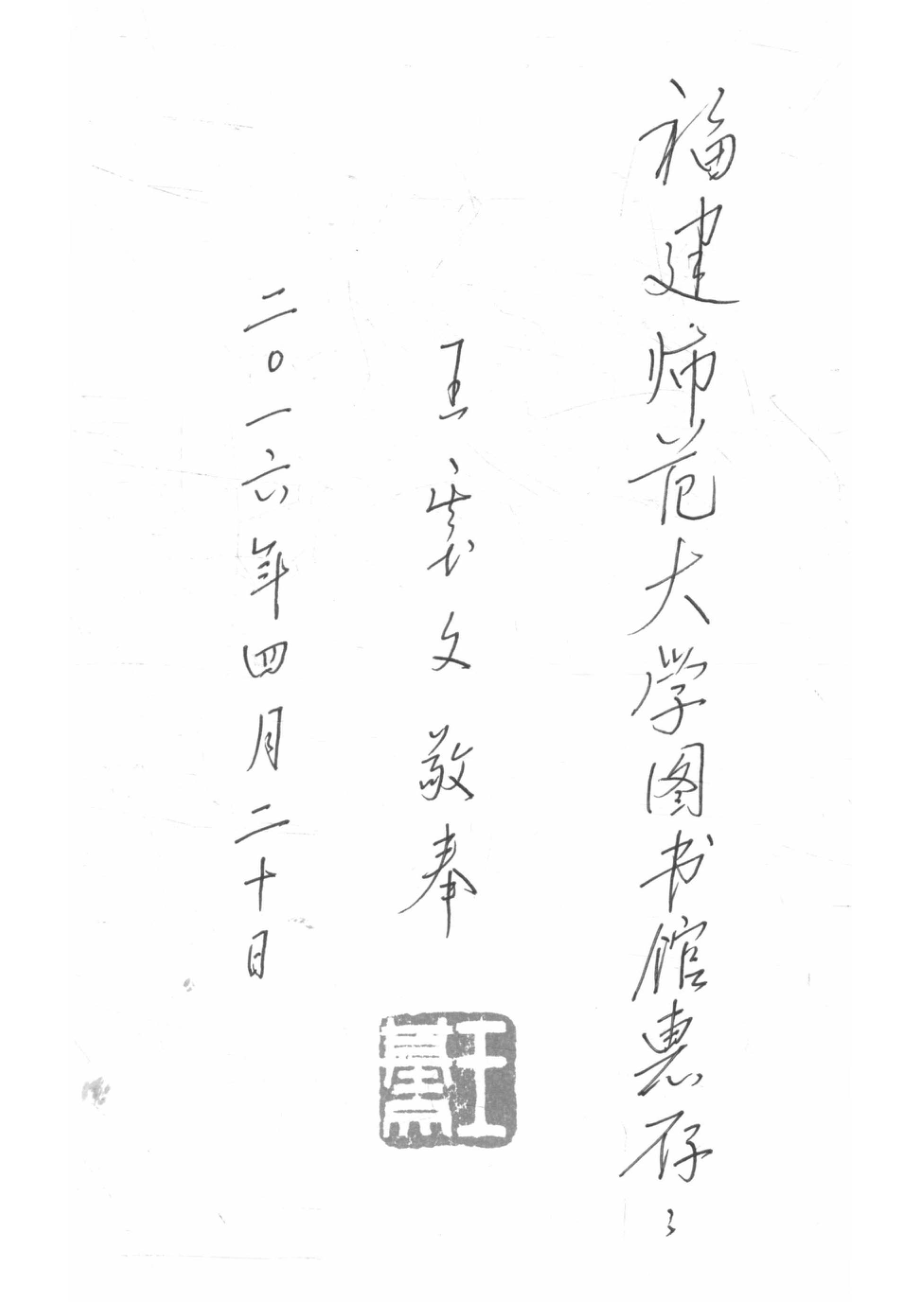 福建师范大学图书馆惠存
王文敬奉
二〇一六年四月二十日
王